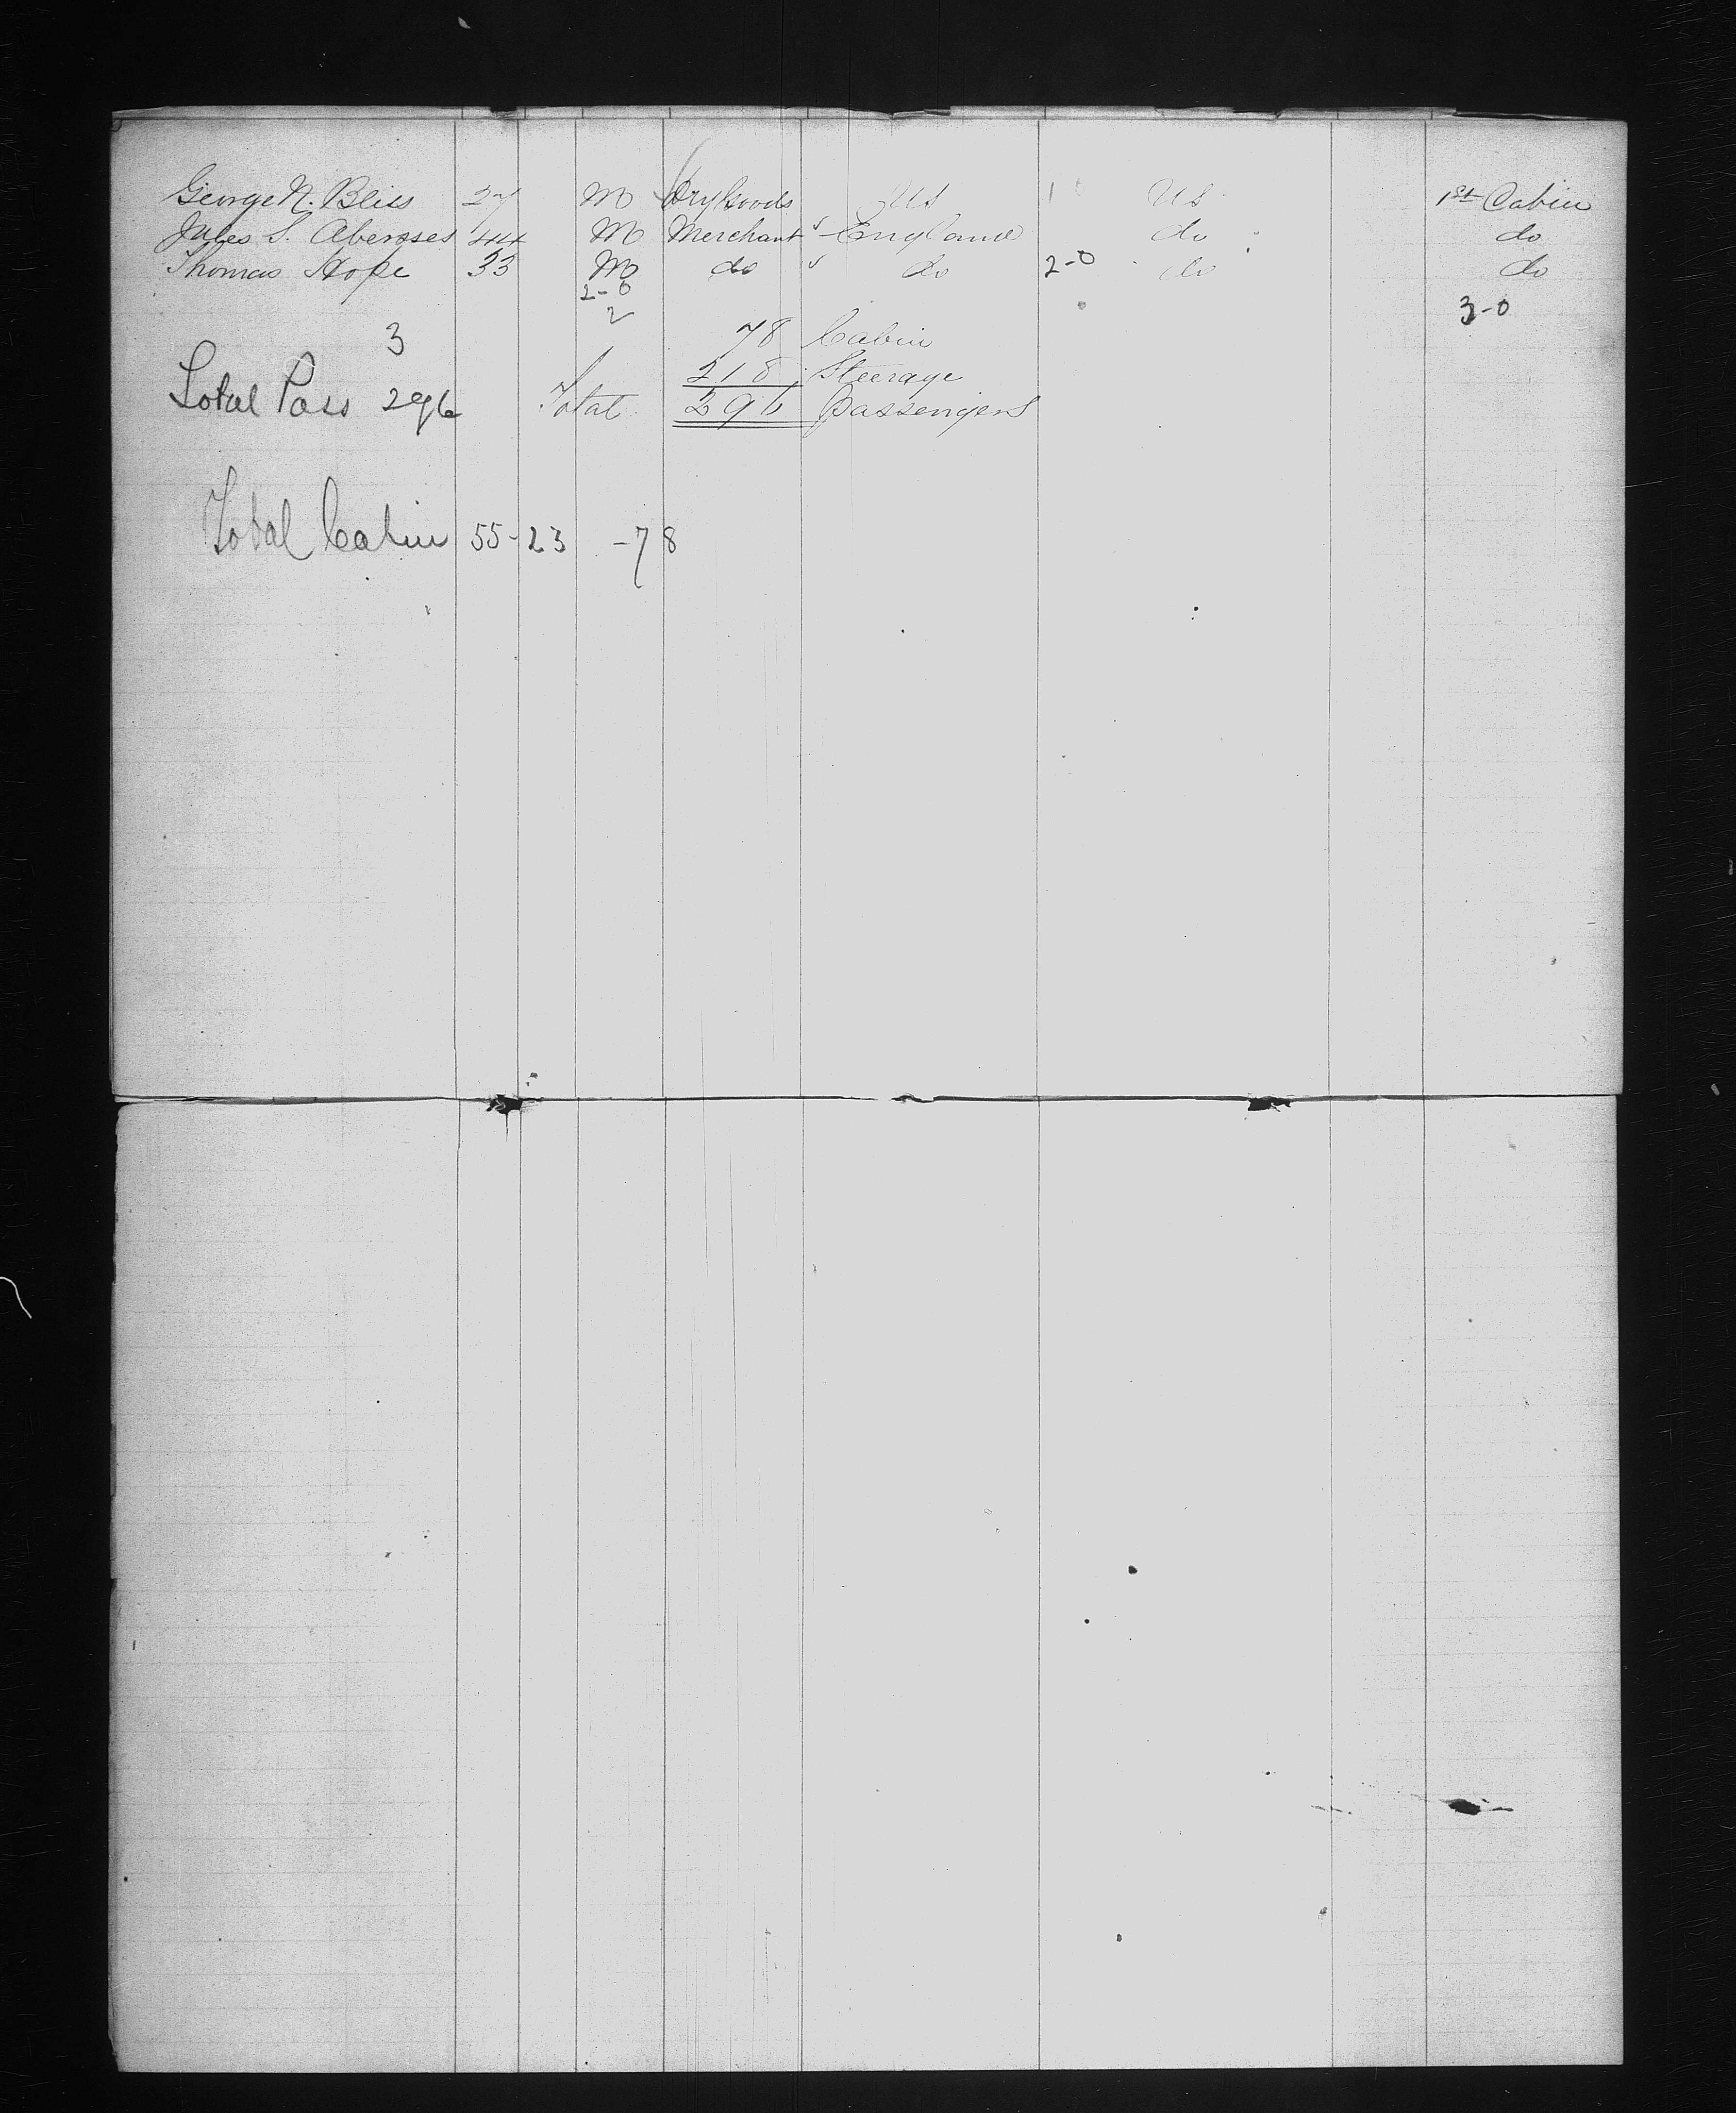 George N. Bliss 27 M Dry Goods US 1 US 1st Cabin
Jules S. 44 M Merchant England do do
Thomas Hope 33 M do do 2-0 do do
2-0 3-0
2
3 78 Cabin
218 Steerage
Total Pass 296 Total 296 Passengers
Total Cabin 55-23 -78